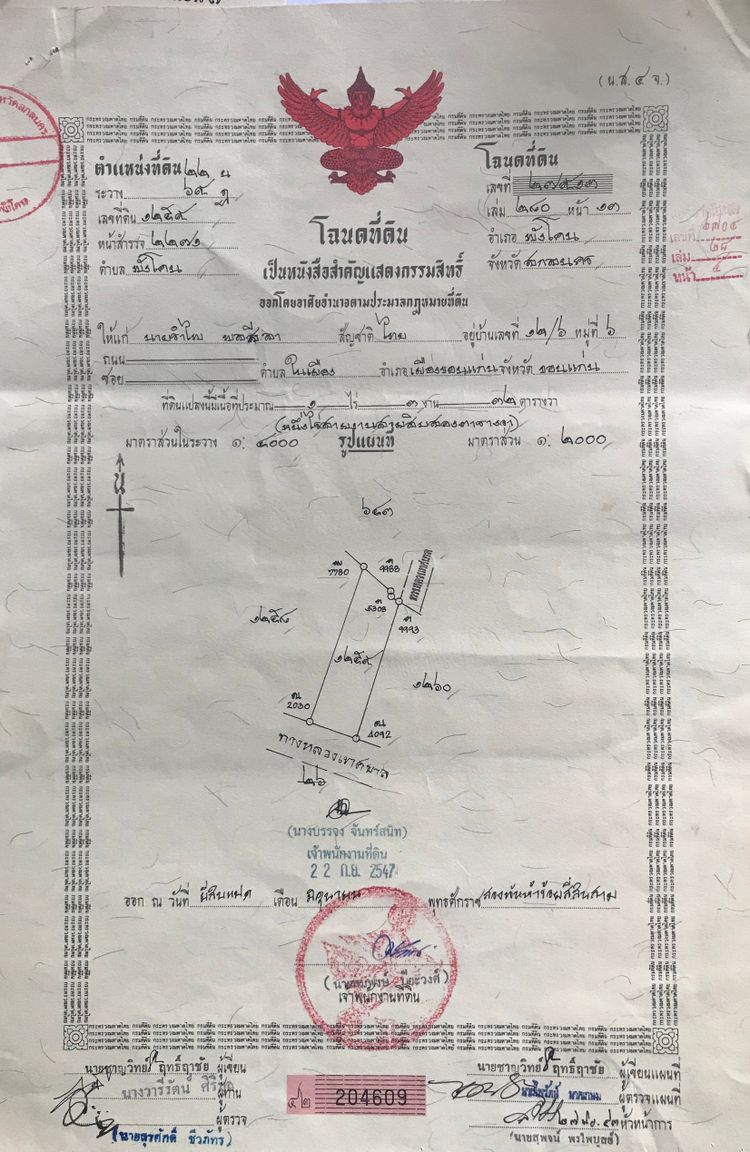 (น.ส. ๔ จ.)
ตำแหน่งที่ดิน
ระวาง
เลขที่ดิน ๑๒๕๙
หน้าสำรวจ ๒๒๗๑
ตำบล พังโคน
โฉนดที่ดิน
เลขที่
เล่ม ๒๘๐ หน้า ๑๓
อำเภอ พังโคน
จังหวัด สกลนคร
เลขที่
เล่ม
หน้า
โฉนดที่ดิน
เป็นหนังสือสำคัญแสดงกรรมสิทธิ์
ออกโดยอาศัยอำนาจตามประมวลกฎหมายที่ดิน
ให้แก่ สัญชาติ ไทย อยู่บ้านเลขที่ ๑๒/๖ หมู่ที่ ๖
ถนน
ซอย ตำบล ในเมือง อำเภอ เมืองขอนแก่น จังหวัด ขอนแก่น
ที่ดินแปลงนี้มีเนื้อที่ประมาณ ๑ ไร่ ๓ งาน ๓๒ ตารางวา
(หนึ่งไร่สามงานสามสิบสองตารางวา)
มาตราส่วนในระวาง ๑: ๔๐๐๐ รูปแผนที่ มาตราส่วน ๑: ๒๐๐๐
น
๖๔๓
7780
9988
5308
9993
ทางหลวงเทศบาล
๑๒๕๘
๑๒๕๙
๑๒๖๐
2030
4092
ทางหลวงเทศบาล
๒๖
(นางบรรจง จันทร์สนิท)
เจ้าพนักงานที่ดิน
22 ก.ย. 2547
ออก ณ วันที่ ยี่สิบแปด เดือน มิถุนายน พุทธศักราช สองพันห้าร้อยสี่สิบสาม
เจ้าพนักงานที่ดิน
นายชาญวิทย์ ฤทธิ์ฤาชัย ผู้เขียน
นางวารีรัตน์ ผู้ทาน
ผู้ตรวจ
(นายสุรศักดิ์ ชีวภัทร)
๕/๒ 204609
นายชาญวิทย์ ฤทธิ์ฤาชัย ผู้เขียนแผนที่
ผู้ตรวจแผนที่
หัวหน้าการ
นายสุพจน์ พรไพบูลย์